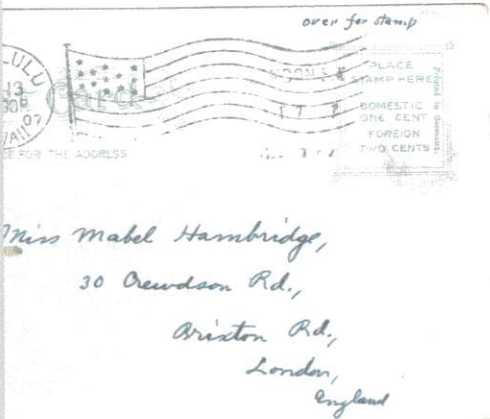 over for stamp
LULU
13
30P
07
AII
Card
PLACE
STAMP HERE
DOMESTIC
ONE CENT
FOREIGN
TWO CENTS
Printed in Germany.
FOR THE ADDRESS
Miss Mabel Hambridge,
30 Crewdson Rd.,
Brixton Rd.,
London,
England